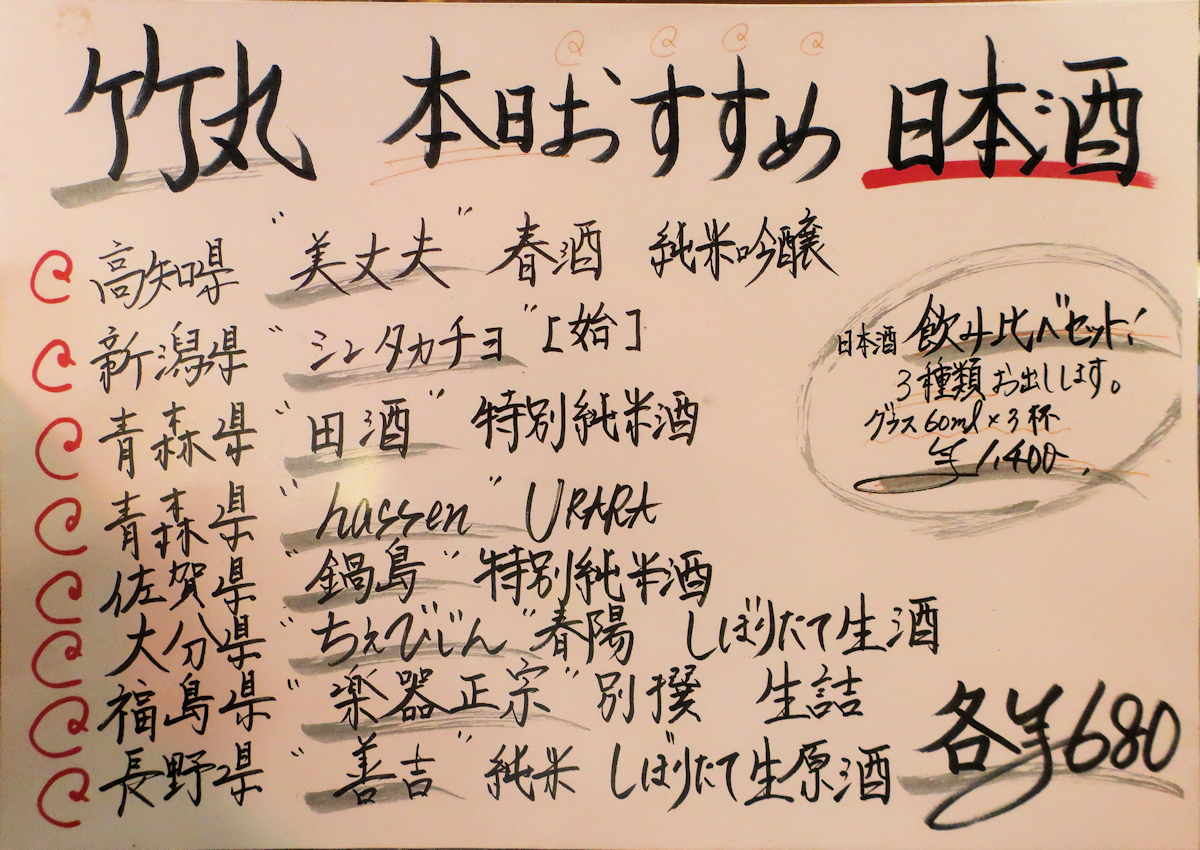 竹丸 本日おすすめ 日本酒
高知県 "美丈夫" 春酒 純米吟醸
新潟県 "シン・タカチヨ" [始]
青森県 "田酒" 特別純米酒
青森県 "hassen" URARA
佐賀県 "鍋島" 特別純米酒
大分県 "ちえびじん" 春陽 しぼりたて生酒
福島県 "楽器正宗" 別撰 生詰
長野県 "善吉" 純米 しぼりたて生原酒
日本酒 飲み比べセット!
3種類お出しします。
グラス60ml×3杯
¥1,400-
各¥680